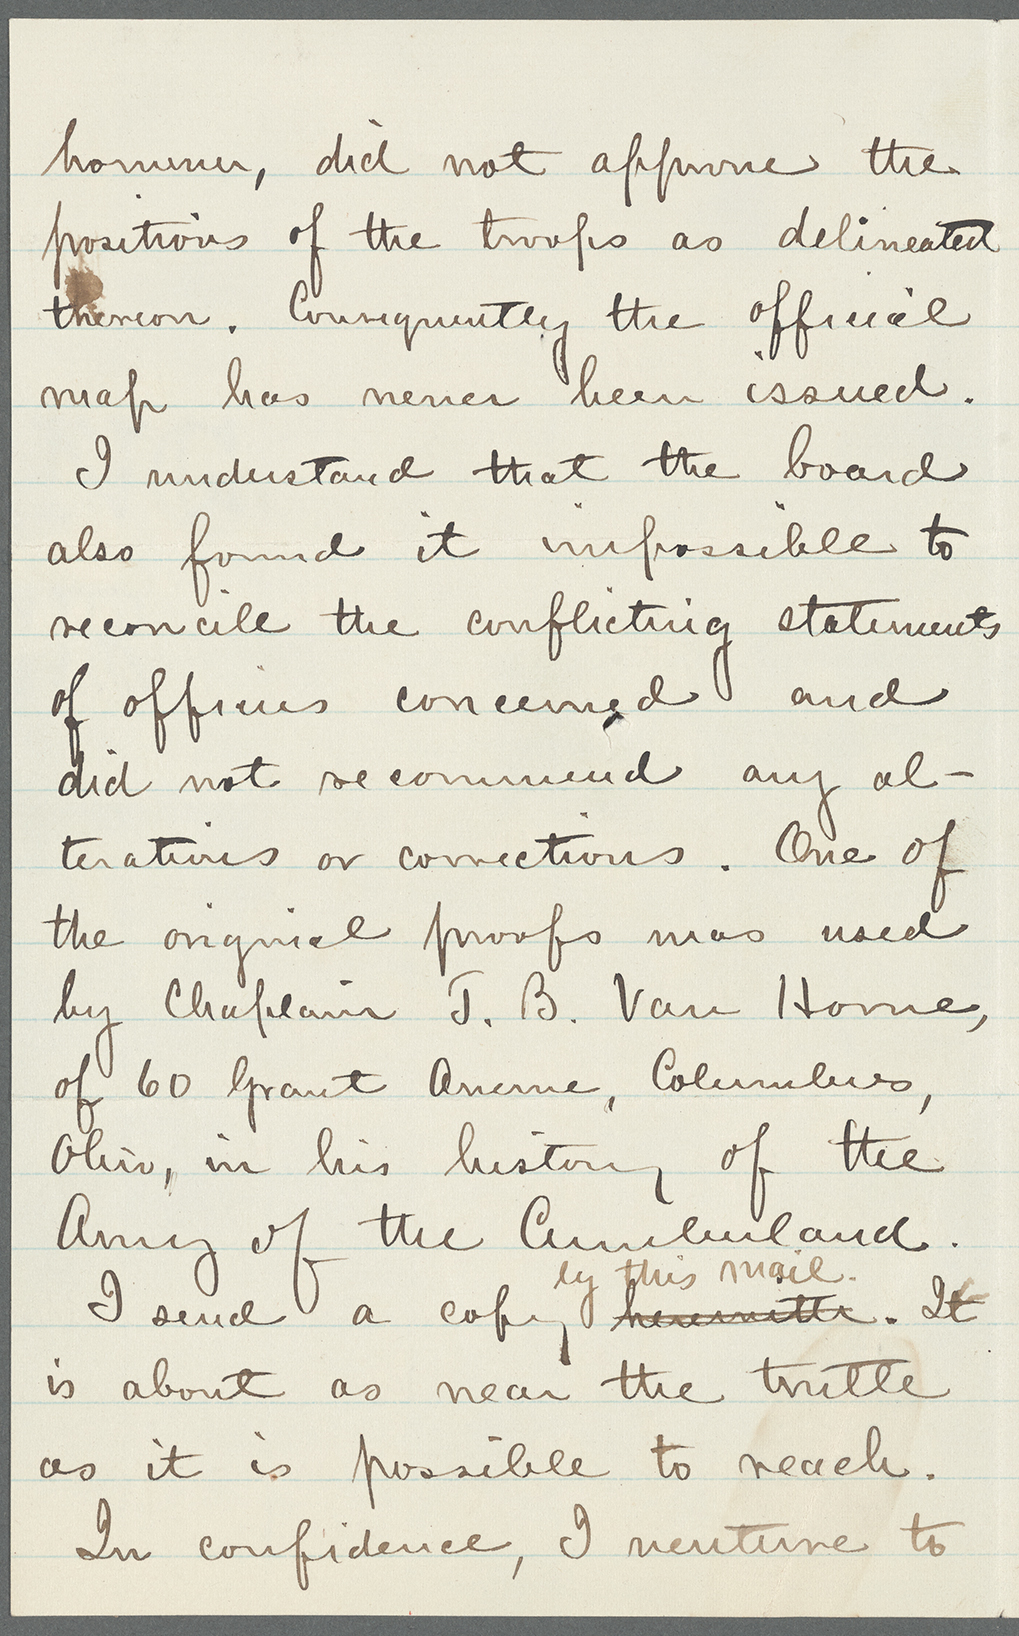 however, did not approve the
positions of the troops as delineated
thereon. Consequently the official
map has never been issued.
I understand that the board
also found it impossible to
reconcile the conflicting statements
of officers concerned and
did not recommend any al-
terations or corrections. One of
the original proofs was used
by Chaplain T. B. Van Horne,
of 60 Grant Avenue, Columbus,
Ohio, in his history of the
Army of the Cumberland.
by this mail.
I send a copy herewith. It
is about as near the truth
as it is possible to reach.
In confidence, I venture to